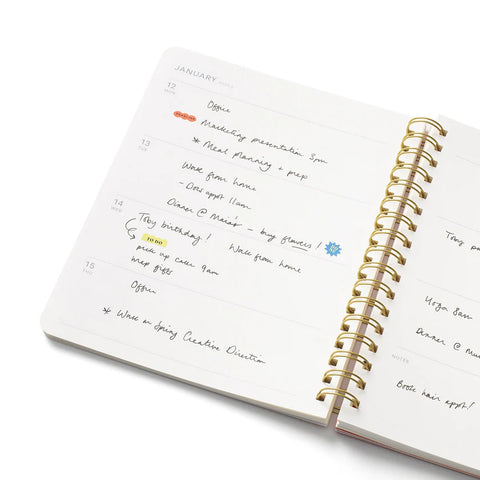 JANUARY
12
MON
Office
Marketing presentation 3pm
* Meal planning + prep
13
TUE
Work from home
- Docs appt 11am
Dinner @ Maia's - buy flowers!
14
WED
Toby birthday! Work from home
TO DO
pick up cake 9am
wrap gifts
15
THU
Office
* Work on Spring Creative Direction
Toby
Yoga 8am
Dinner @
NOTES
Book hair appt!